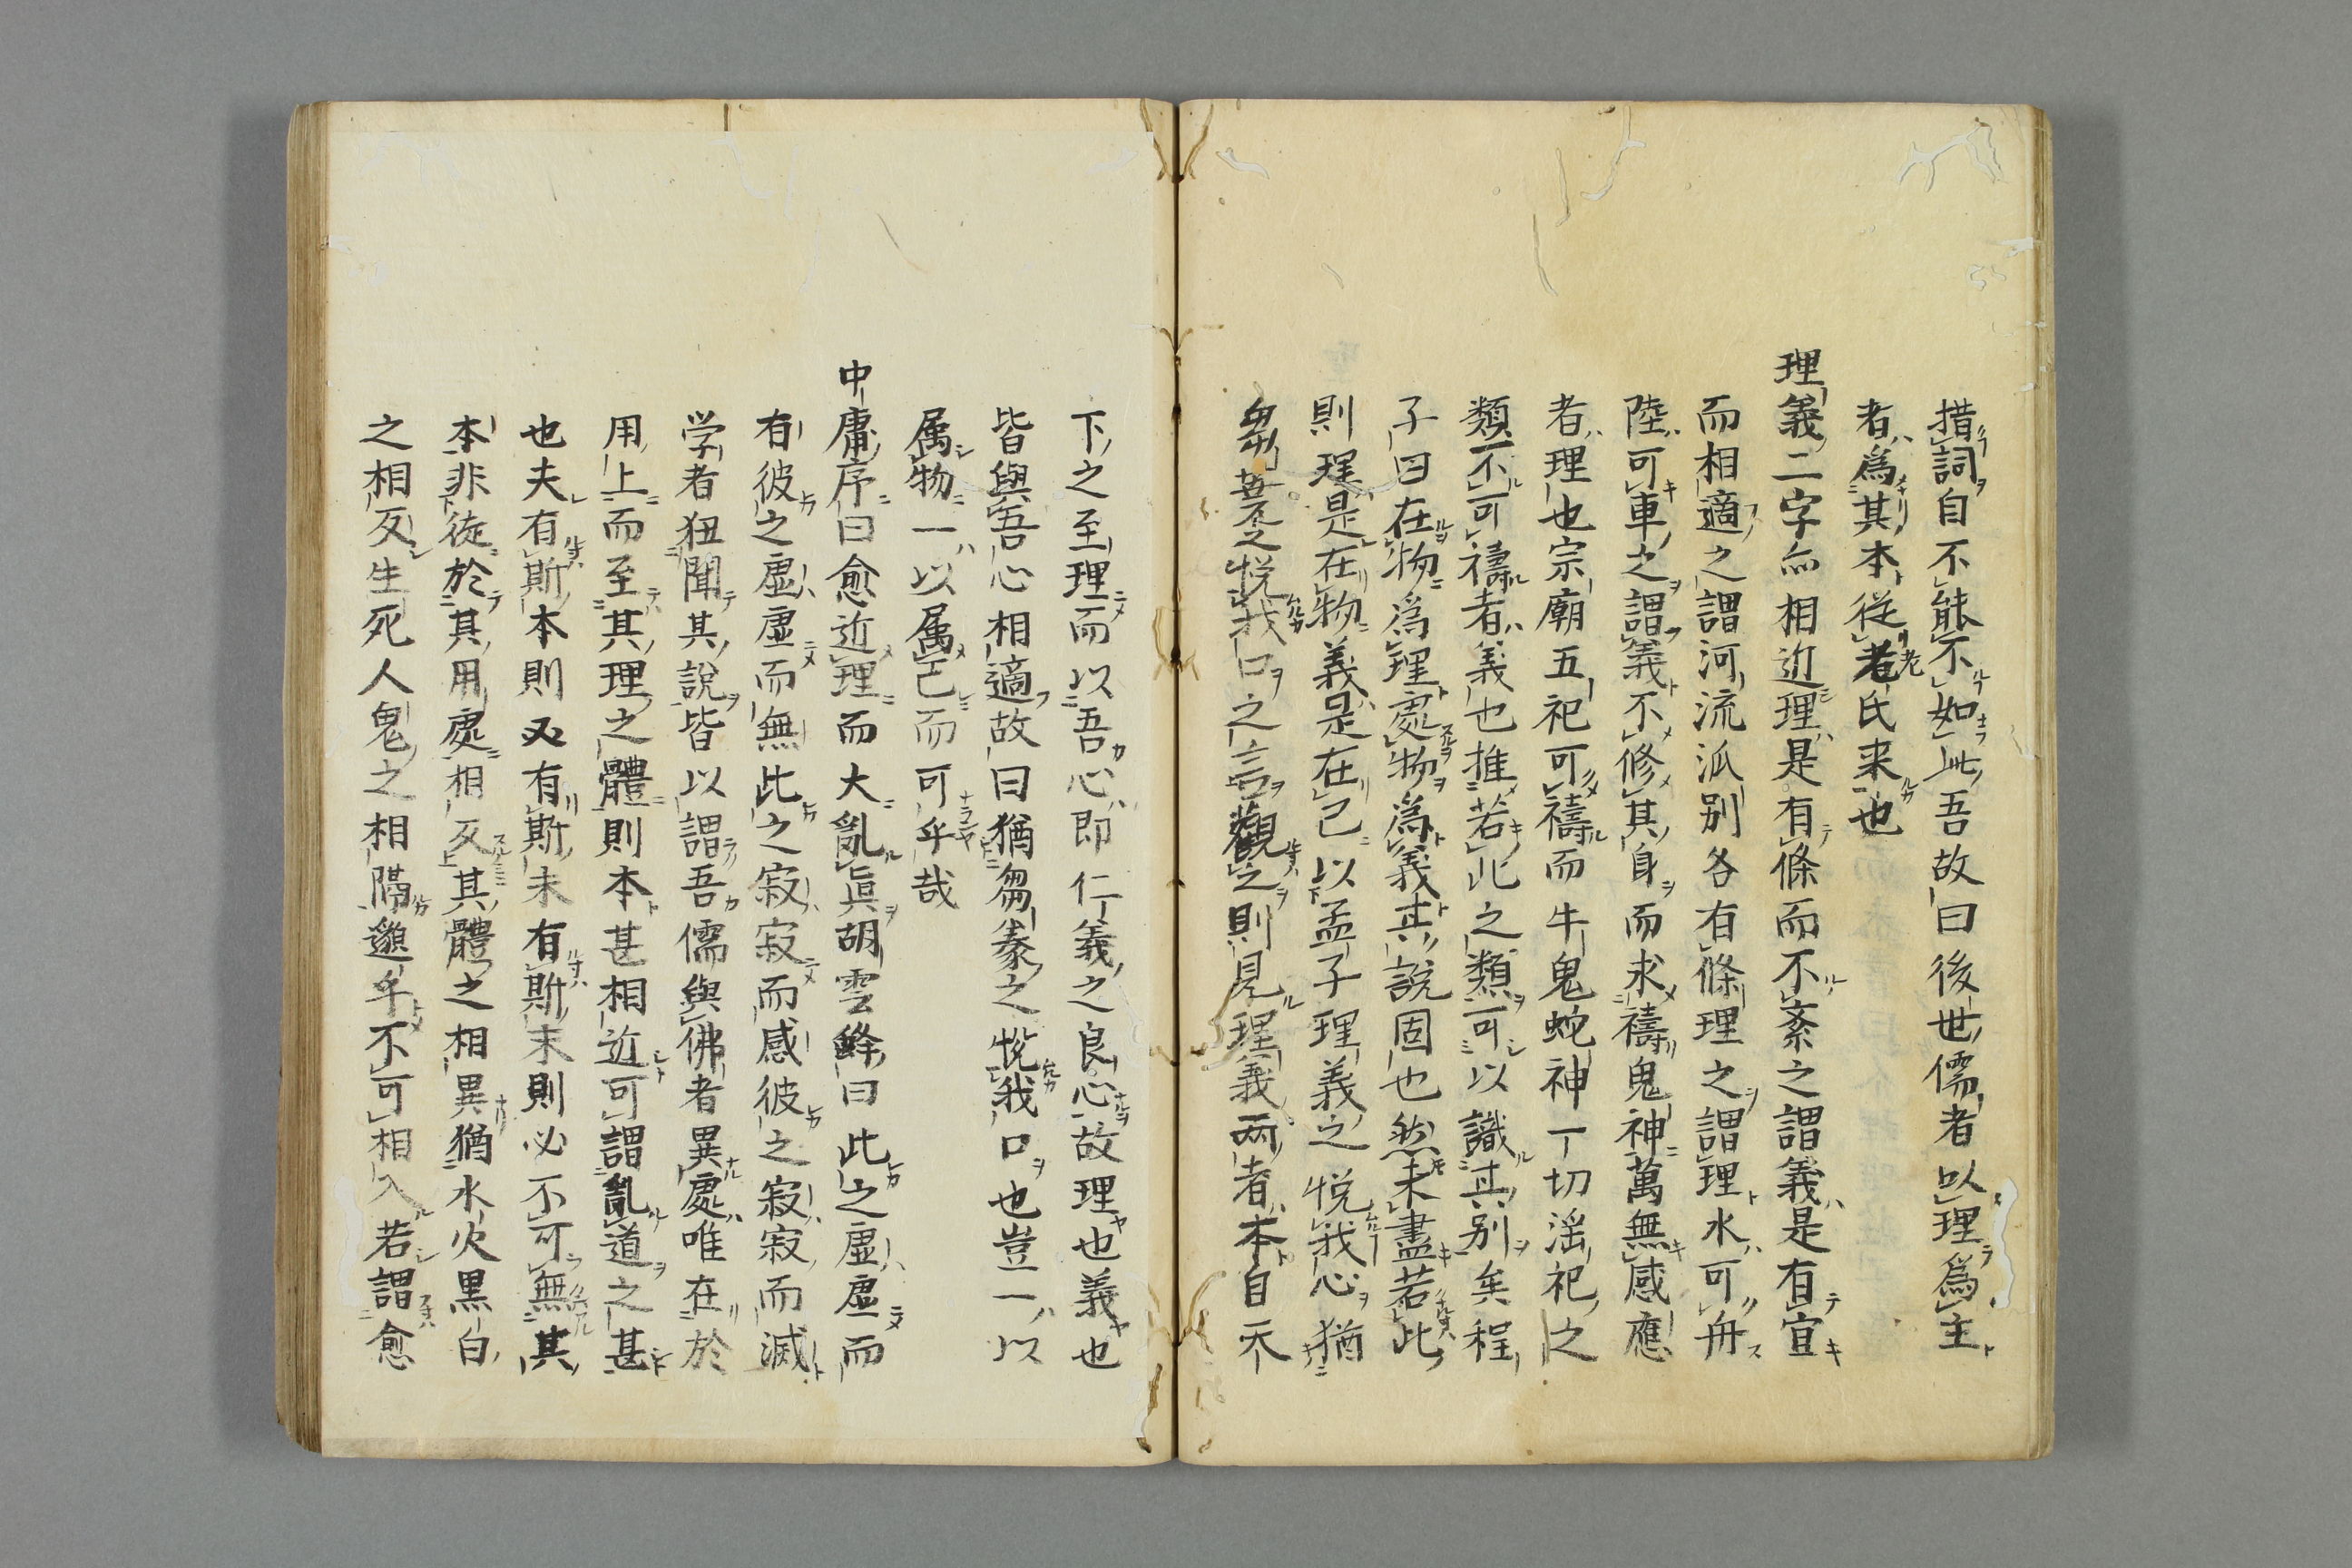 措詞自不能不如此吾故曰後世儒者以理爲主
者爲其本從老氏来也
理義二字亦相近理是有條而不紊之謂義是有宜
而相適之謂河流派别各有條理之謂理水可舟
陸可車之謂義不修其身而求禱鬼神萬無感應
者理也宗廟五祀可禱而牛鬼蛇神一切淫祀之
類不可禱者義也推若此之類可以識其别矣程
子曰在物爲理處物爲義其說固也然未盡若此
則理是在物義是在己以孟子理義之悦我心猶
芻豢之悦我口之言觀之則見理義两者本自天
下之至理而以吾心即仁義之良心故理也義也
皆與吾心相適故曰猶芻豢之悦我口也豈一以
属物一以属己而可乎哉
中庸序曰愈近理而大亂眞胡雲峰曰此之虚虚而
有彼之虚虚而無此之寂寂而感彼之寂寂而滅
学者狃聞其說皆以謂吾儒與佛者異處唯在於
用上而至其理之體則本甚相近可謂亂道之甚
也夫有斯本則必有斯末有斯末則必不可無其
本非徒於其用處相反其體之相異猶水火黒白
之相反生死人鬼之相隔邈乎不可相入若謂愈